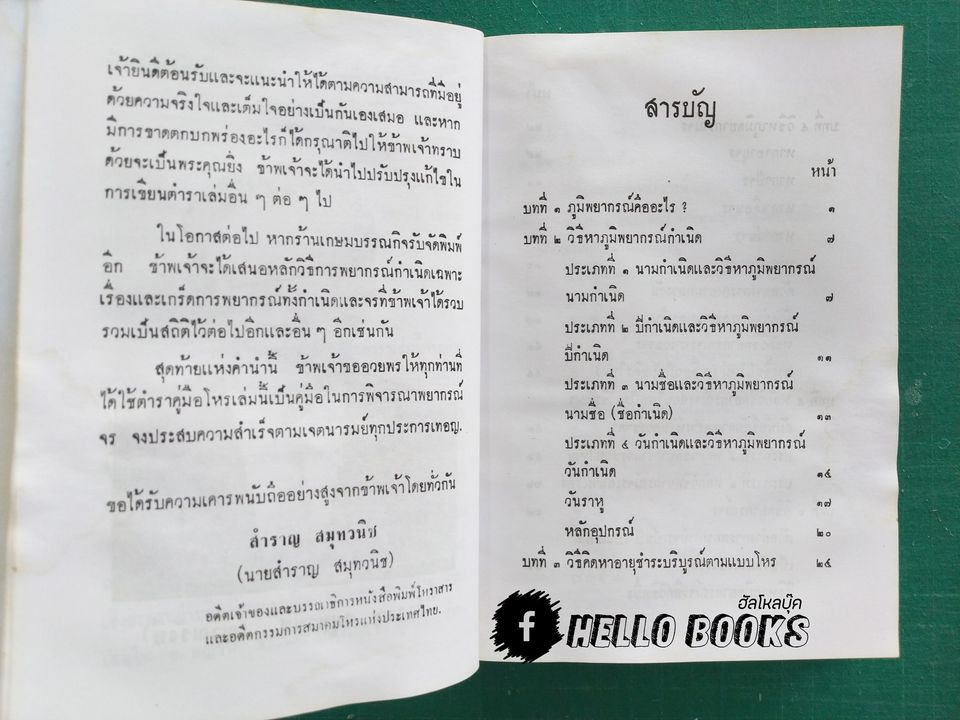 เจ้ายินดีต้อนรับและจะแนะนำให้ได้ตามความสามารถที่มีอยู่
ด้วยความจริงใจและเต็มใจอย่างเป็นกันเองเสมอ และหาก
มีการขาดตกบกพร่องอะไรก็ได้กรุณาติไปให้ข้าพเจ้าทราบ
ด้วยจะเป็นพระคุณยิ่ง ข้าพเจ้าจะได้นำไปปรับปรุงแก้ไขใน
การเขียนตำราเล่มอื่น ๆ ต่อ ๆ ไป
ในโอกาสต่อไป หากร้านเกษมบรรณกิจรับจัดพิมพ์
อีก ข้าพเจ้าจะได้เสนอหลักวิธีการพยากรณ์กำเนิดเฉพาะ
เรื่องและเกร็ดการพยากรณ์ทั้งกำเนิดและจรที่ข้าพเจ้าได้รวบ
รวมเป็นสถิติไว้ต่อไปอีกและอื่น ๆ อีกเช่นกัน
สุดท้ายแห่งคำนำนี้ ข้าพเจ้าขออวยพรให้ทุกท่านที่
ได้ใช้ตำราคู่มือโหรเล่มนี้เป็นคู่มือในการพิจารณาพยากรณ์
จร จงประสบความสำเร็จตามเจตนารมย์ทุกประการเทอญ.
ขอได้รับความเคารพนับถืออย่างสูงจากข้าพเจ้าโดยทั่วกัน
สำราญ สมุทวนิช
(นายสำราญ สมุทวนิช)
อดีตเจ้าของและบรรณาธิการหนังสือพิมพ์โหราสาร
และอดีตกรรมการสมาคมโหรแห่งประเทศไทย.
สารบัญ
หน้า
บทที่ ๑ ภูมิพยากรณ์คืออะไร ? ๑
บทที่ ๒ วิธีหาภูมิพยากรณ์กำเนิด ๗
ประเภทที่ ๑ นามกำเนิดและวิธีหาภูมิพยากรณ์
นามกำเนิด ๗
ประเภทที่ ๒ ปีกำเนิดและวิธีหาภูมิพยากรณ์
ปีกำเนิด ๑๑
ประเภทที่ ๓ นามชื่อและวิธีหาภูมิพยากรณ์
นามชื่อ (ชื่อกำเนิด) ๑๓
ประเภทที่ ๔ วันกำเนิดและวิธีหาภูมิพยากรณ์
วันกำเนิด ๑๕
วันราหู ๑๗
หลักอุปกรณ์ ๒๐
บทที่ ๓ วิธีคิดหาอายุชำระบริบูรณ์ตามแบบโหร ๒๕
ฮัลโหลบุ๊ค
f HELLO BOOKS